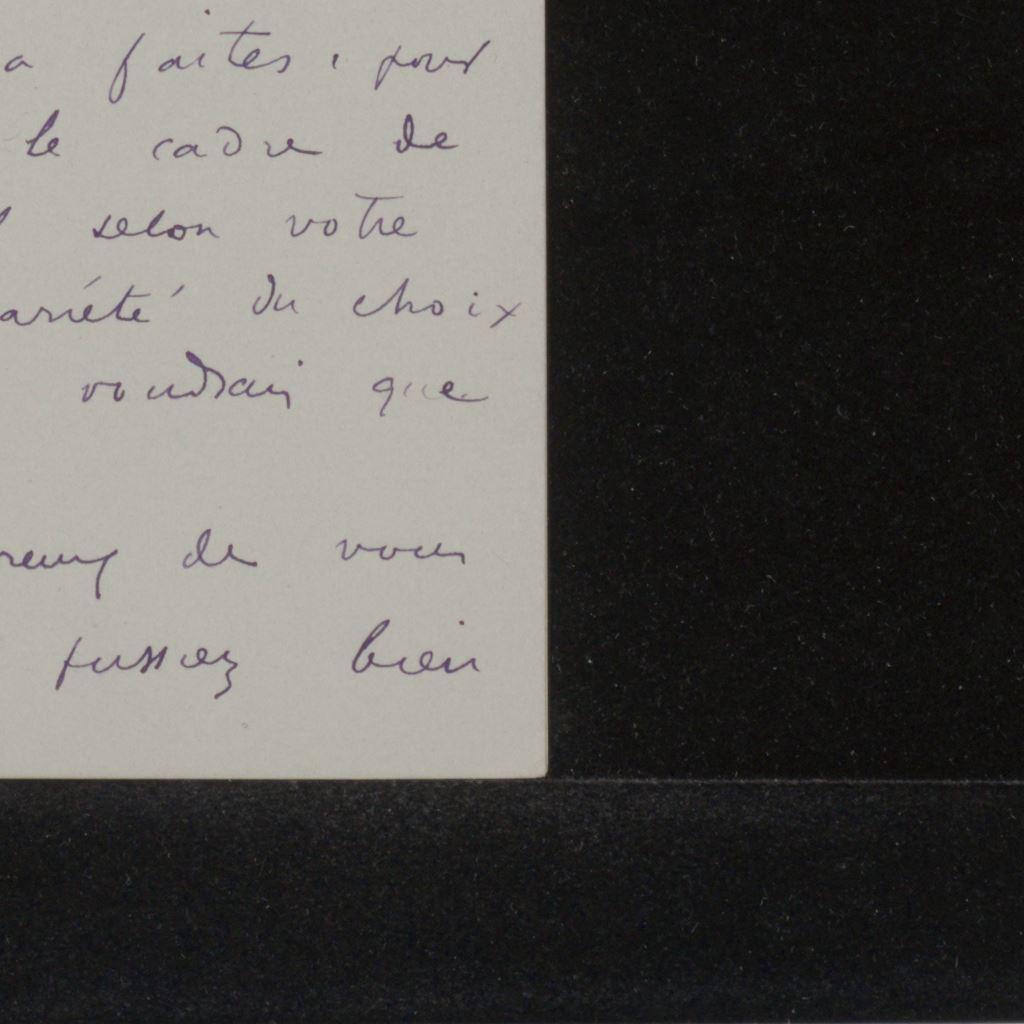 a faites, pour
le cadre de
selon votre
ariété du choix
voudrais que
reux de vous
fussiez bien